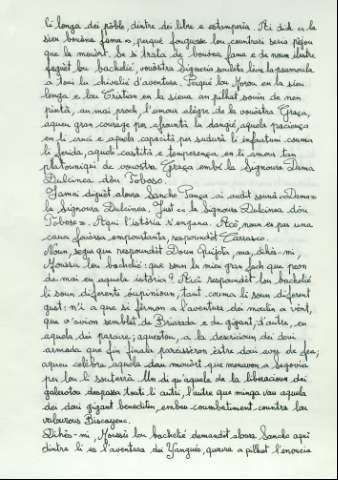 li lenga dei pòble, dintre dei libre e estamparia. Ai dich en la
sieu bouòna fama, perqué fouguesse lou countrari seria pèjou
que la mouòrt. Se si trata de bouòna fama e de noum, diatre
faguèt lou bachelié, vouòstra Signouria souleta leva la paraula
a toui lu chivalié d'aventura. Perqué lou Morou en la siéu
lenga e lou Cristian en la siéuna an pilhat souin de nen
pintà, au mai proch, l'umour alègre de la vouòstra Graça,
aqueu gran courage per afrountà lu dangié, aquela paciença
en li
li ferida, aquela castità e temperança, en li amour tan
platounique de vouòstra Graça embé la Signoura Dama
Dulcinea dóu Toboso.
Jamai diguèt aloura Sancho Pança ai audit sounà Dama
la Signoura Dulcinea. Just « la Signoura Dulcinea dóu
Toboso ». Aquí l'istòria s'engana. Acò noun es pas una
cauva fouòrça empourtanta, respoundèt Carrasco.
Noun, segur que respoundèt Doun Quijota, ma, dihès-mi,
Moussu lou bachelié: que soun la miéu gran fach que pourn
de mai en aquela istòria? Aiçò respoundèt lou bachelié
li soun diferenti oupinioun, tant couma li soun diferent
gust: n'i a que si fèrmon a l'aventura dei moulin a vent,
que v'avion semblat de Briareda e de gigant, d'autre, en
aquela dei paraire; aquestou, a la descricioun dei doui
armada que fin finala pareissèron èstre doui avé de fea;
aqueu celèbra, aquela dau mouòrt que menavon a Segovia
per lou li souterrà. Un di qu'aquela de la liberacioun dei
galeotou despassa touti li autri, l'autre que minga vau aquela
dei doui gigant beneditin, embé lou coumbatiment countra lou
valourous Biscayenc.
Dihès-mi, Moussu lou bachelié demandèt aloura Sancho aquí
dintre li es l'aventura dei Yangués, quoura a pilhat l'envueia